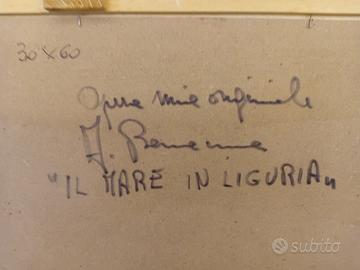 30 x 60
Opera mia originale
"IL MARE IN LIGURIA"
subito